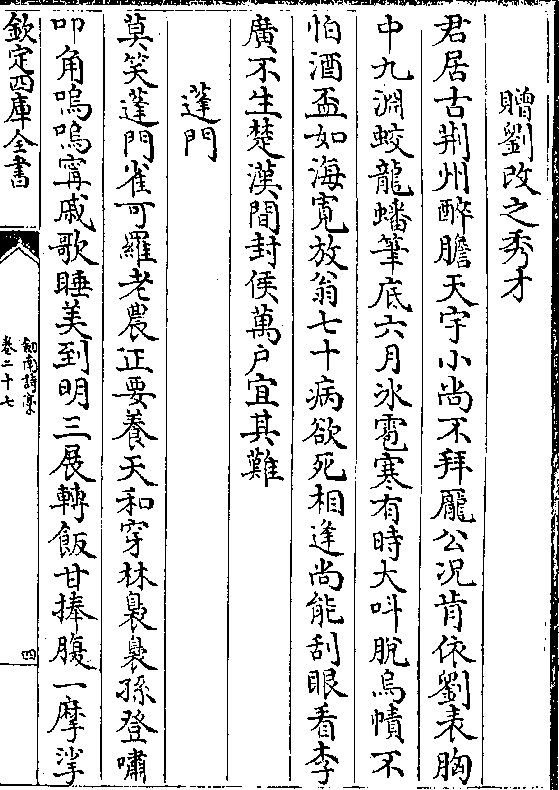 贈劉改之秀才
君居古荆州醉膽天宇小尚不拜龎公况肯依劉表胸
中九淵蛟龍蟠筆底六月冰雹寒有時大呌脫烏幘不
怕酒盃如海寛放翁七十病欲死相逢尚能刮眼看李
廣不生楚漢間封侯萬户宜其難
蓬門
莫笑蓬門雀可羅老農正要養天和穿林裊裊孫登嘯
叩角嗚嗚甯戚歌睡美到明三展轉飯甘捧腹一摩挲
欽定四庫全書
劍南詩藁
卷二十七
四